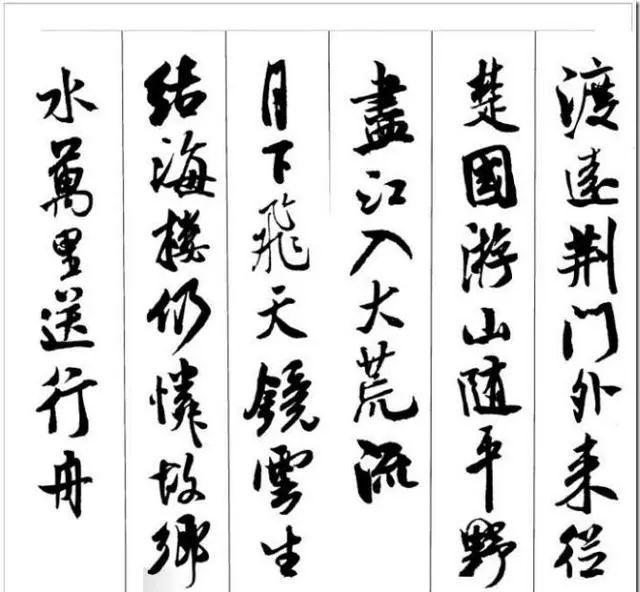 渡遠荆门外来從
楚國游山随平野
盡江入大荒流
月下飛天鏡雲生
结海樓仍憐故鄉
水萬里送行舟